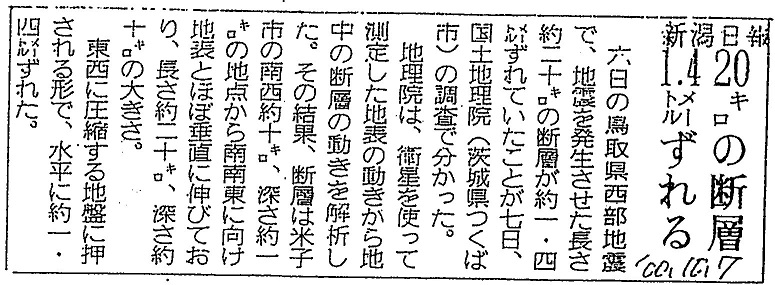 新潟日報
20㌔の断層
1.4㍍ずれる
'00,10,7
六日の鳥取県西部地震
で、地震を発生させた長さ
約二十㌔の断層が約一・四
㍍ずれていたことが七日、
国土地理院（茨城県つくば
市）の調査で分かった。
地理院は、衛星を使って
測定した地表の動きから地
中の断層の動きを解析し
た。その結果、断層は米子
市の南西約十㌔、深さ約一
㌔の地点から南南東に向け
地表とほぼ垂直に伸びてお
り、長さ約二十㌔、深さ約
十㌔の大きさ。
東西に圧縮する地盤に押
される形で、水平に約一・
四㍍ずれた。